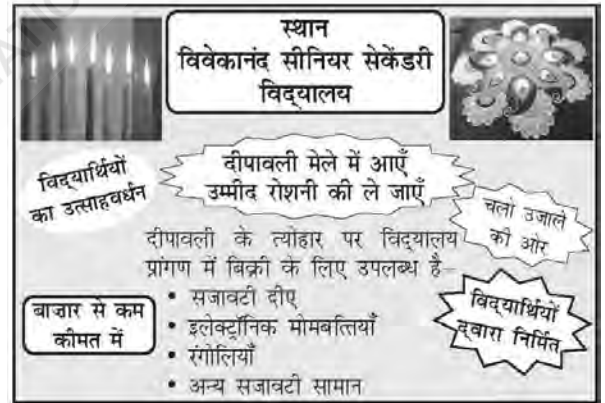 स्थान
विवेकानंद सीनियर सेकेंडरी
विद्यालय
विद्यार्थियों
का उत्साहवर्धन
दीपावली मेले में आएँ
उम्मीद रोशनी की ले जाएँ
चलो उजाले
की ओर
दीपावली के त्योहार पर विद्यालय
प्रांगण में बिक्री के लिए उपलब्ध है–
• सजावटी दीए
• इलेक्ट्रॉनिक मोमबत्तियाँ
• रंगोलियाँ
• अन्य सजावटी सामान
बाज़ार से कम
कीमत में
विद्यार्थियों
द्वारा निर्मित